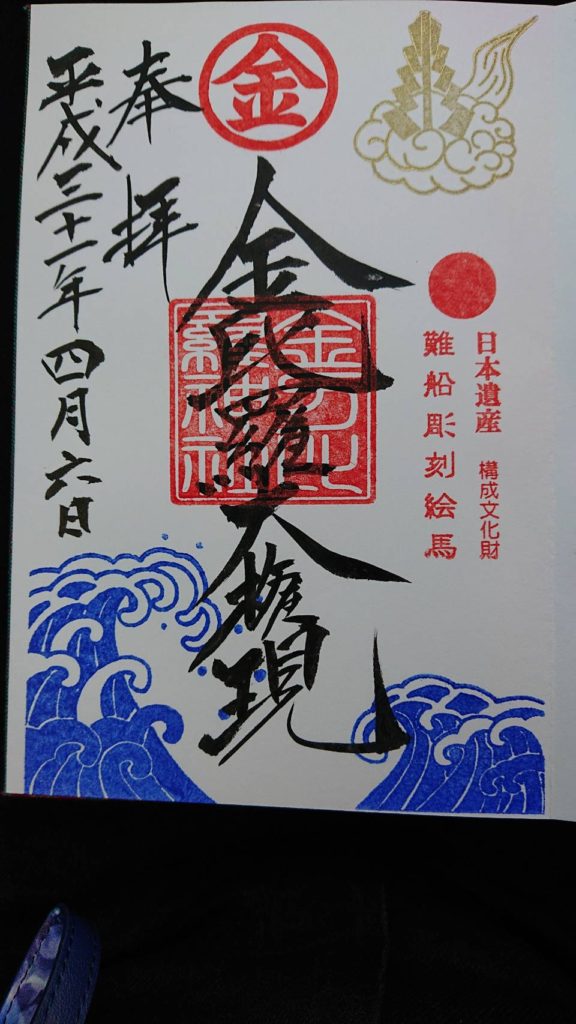 金
日本遺産 構成文化財
難船彫刻絵馬
金毘羅大権現
金刀比
羅神社
奉拝
平成三十一年四月六日